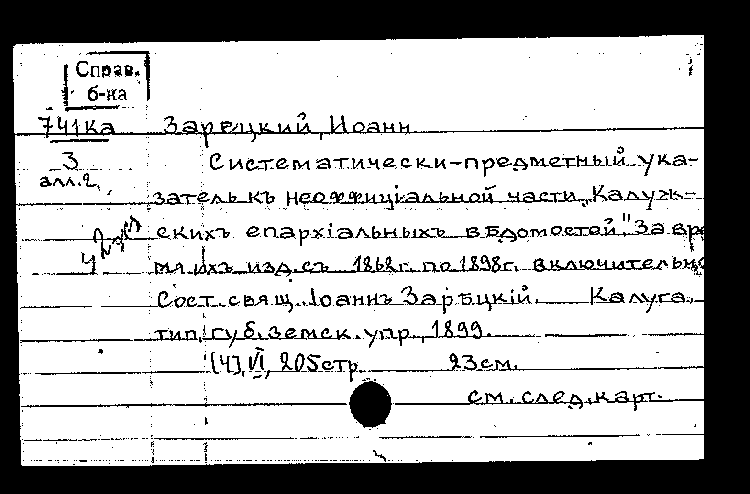 Справ.
б-ка
741ка
Зарецкий, Иоанн
З
Систематически-предметный ука-
алл.2.
затель къ неоффиціальной части „Калуж-
скихъ епархіальныхъ вѣдомостей". За вре
мя ихъ изд. съ 1862г. по 1898г. включительно
Сост. свящ. Іоаннъ Зарѣцкій. Калуга,
тип. губ. земск. упр., 1899.
[4], VI, 205 стр. 23 см.
см. след. карт.